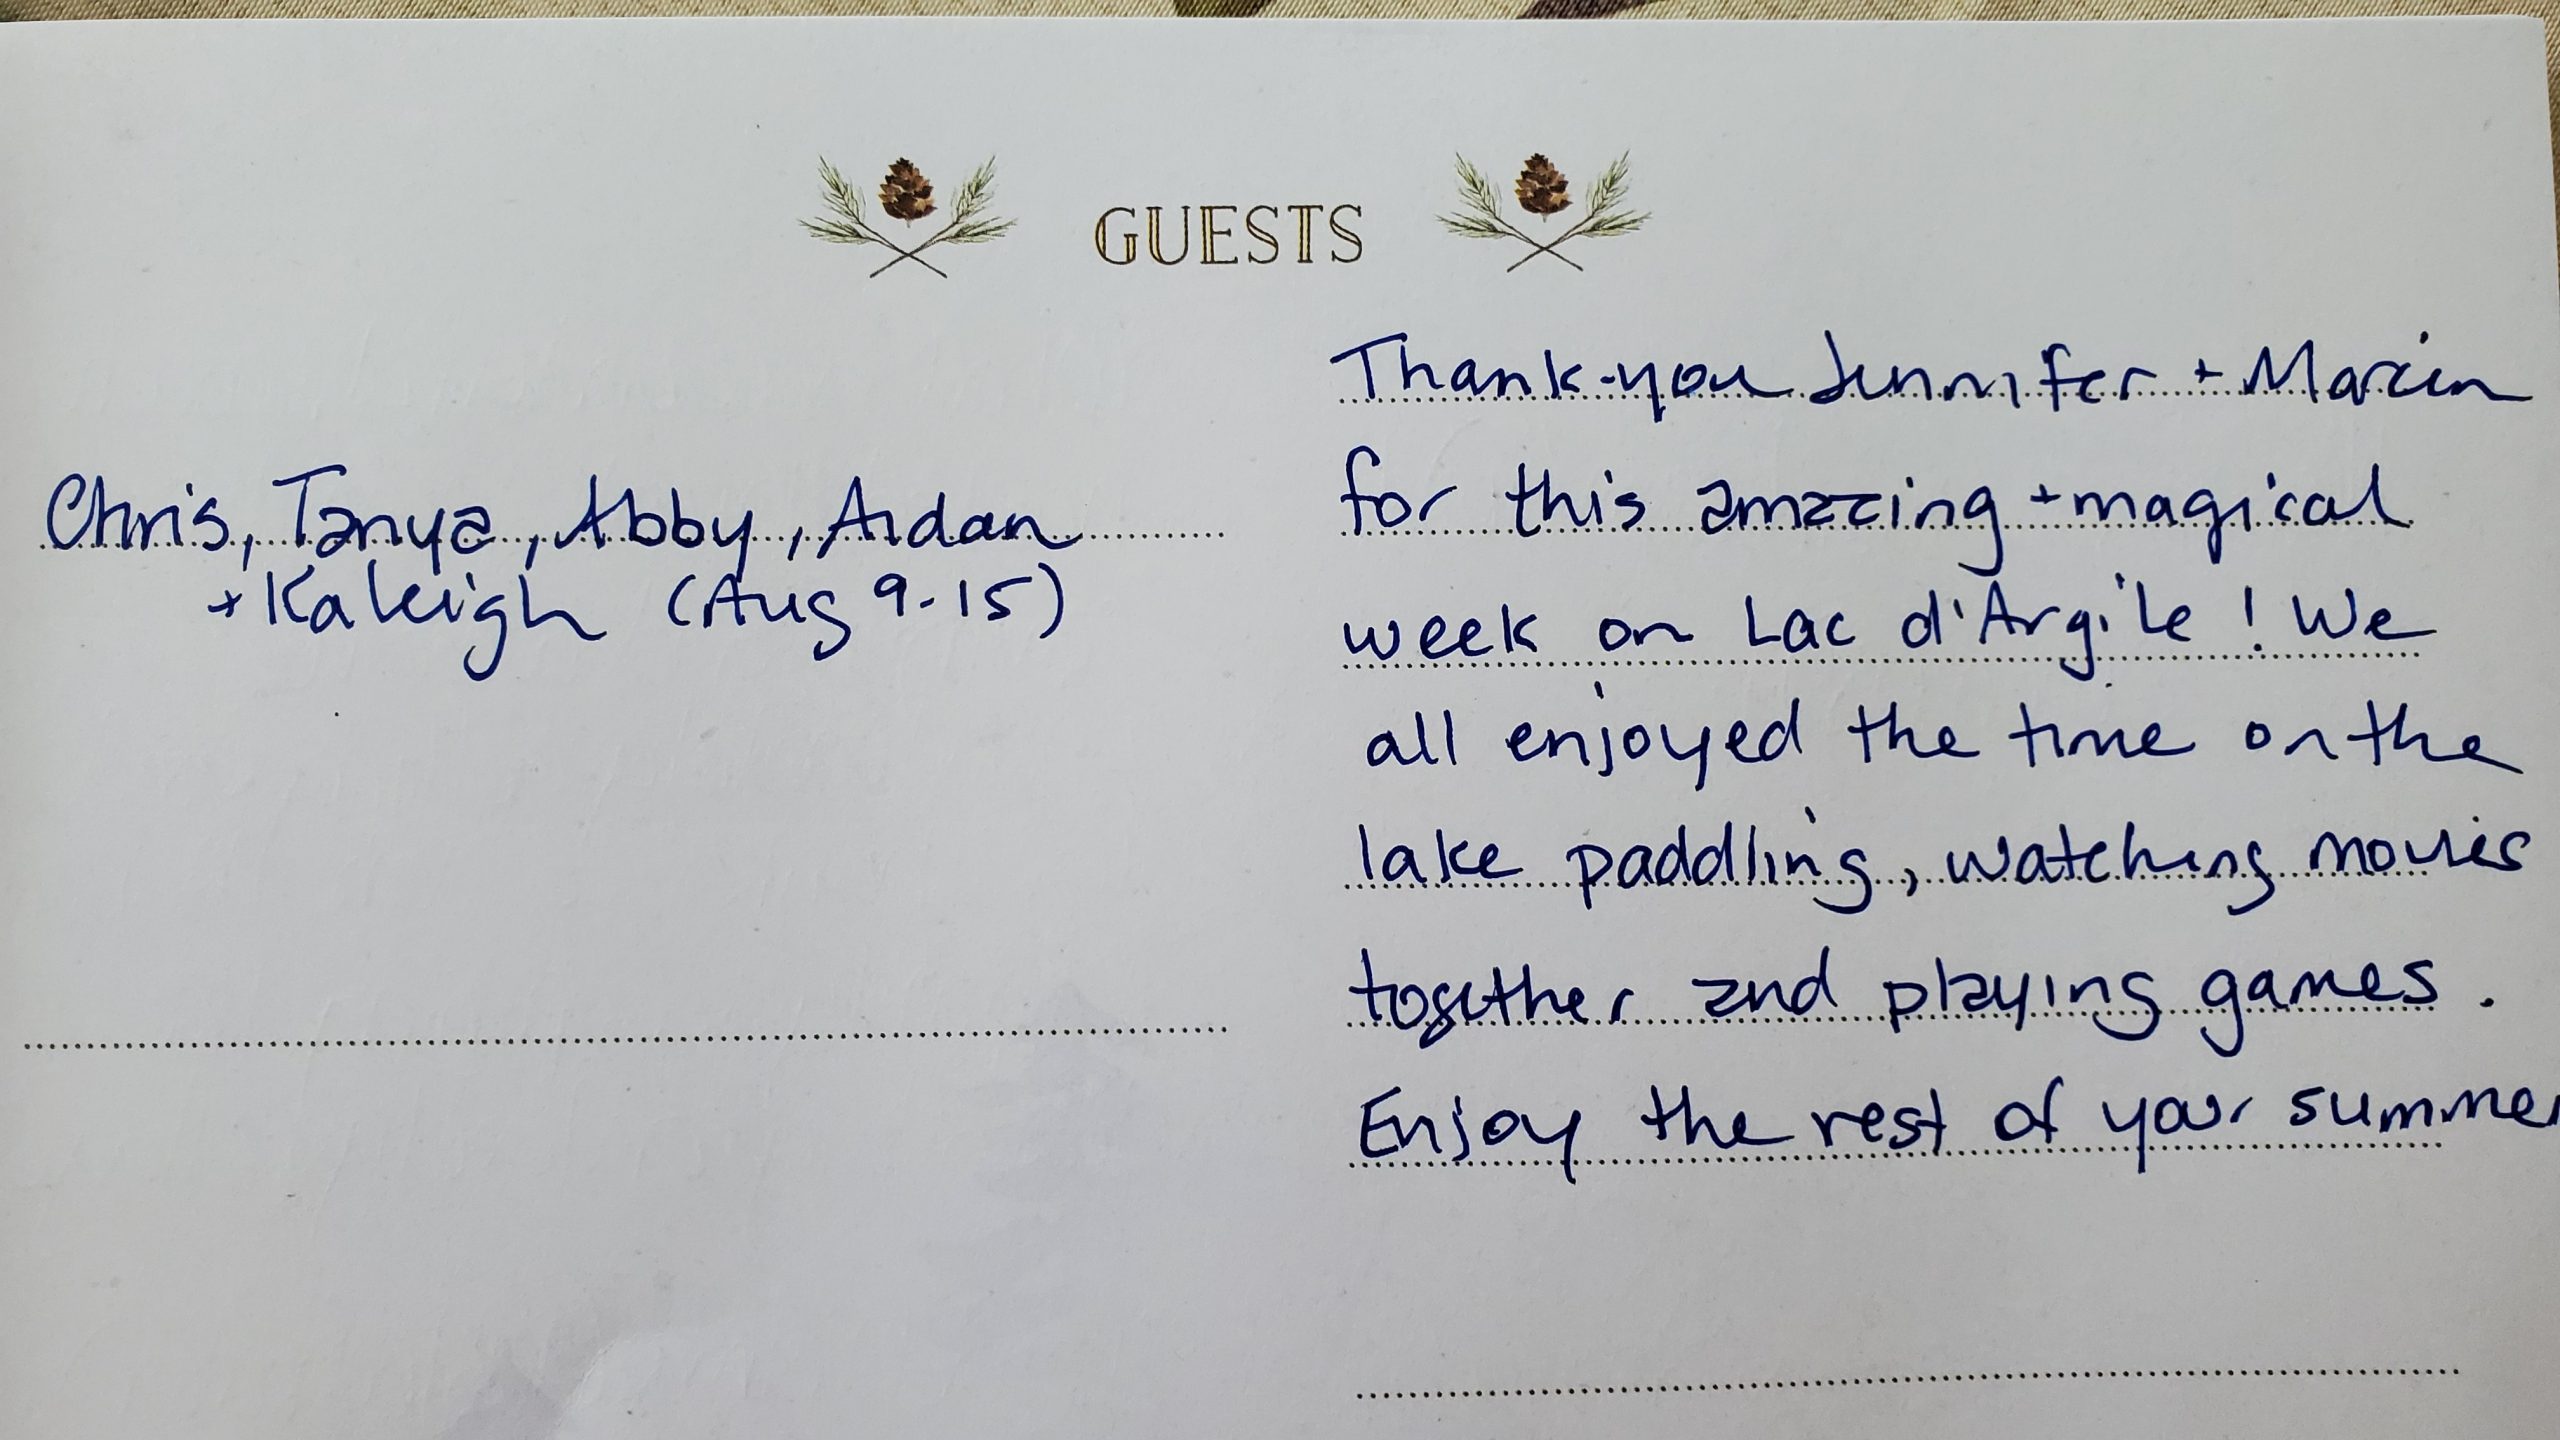 GUESTS
Chris, Tanya, Abby, Aidan
+ Kaleigh (Aug 9-15)
Thank-you Jennifer + Marcin
for this amazing + magical
week on Lac d'Argile! We
all enjoyed the time on the
lake paddling, watching movies
together and playing games.
Enjoy the rest of your summer